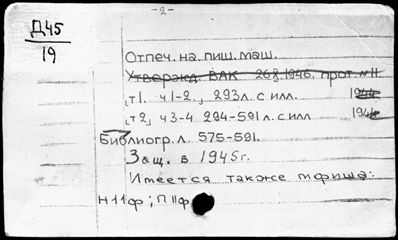 -2-
Д45
19
Отпеч. на. пиш. маш.
Утвержд. ВАК 26 X 1946. прот. N 11.
т1. ч1-2., 293л. с илл. 1944
т2, ч3-4. 294-591л. с илл 1944
Библиогр. л. 575-591.
Защ. в 1945г.
Имеется также мфиша:
Н11ф; П11ф